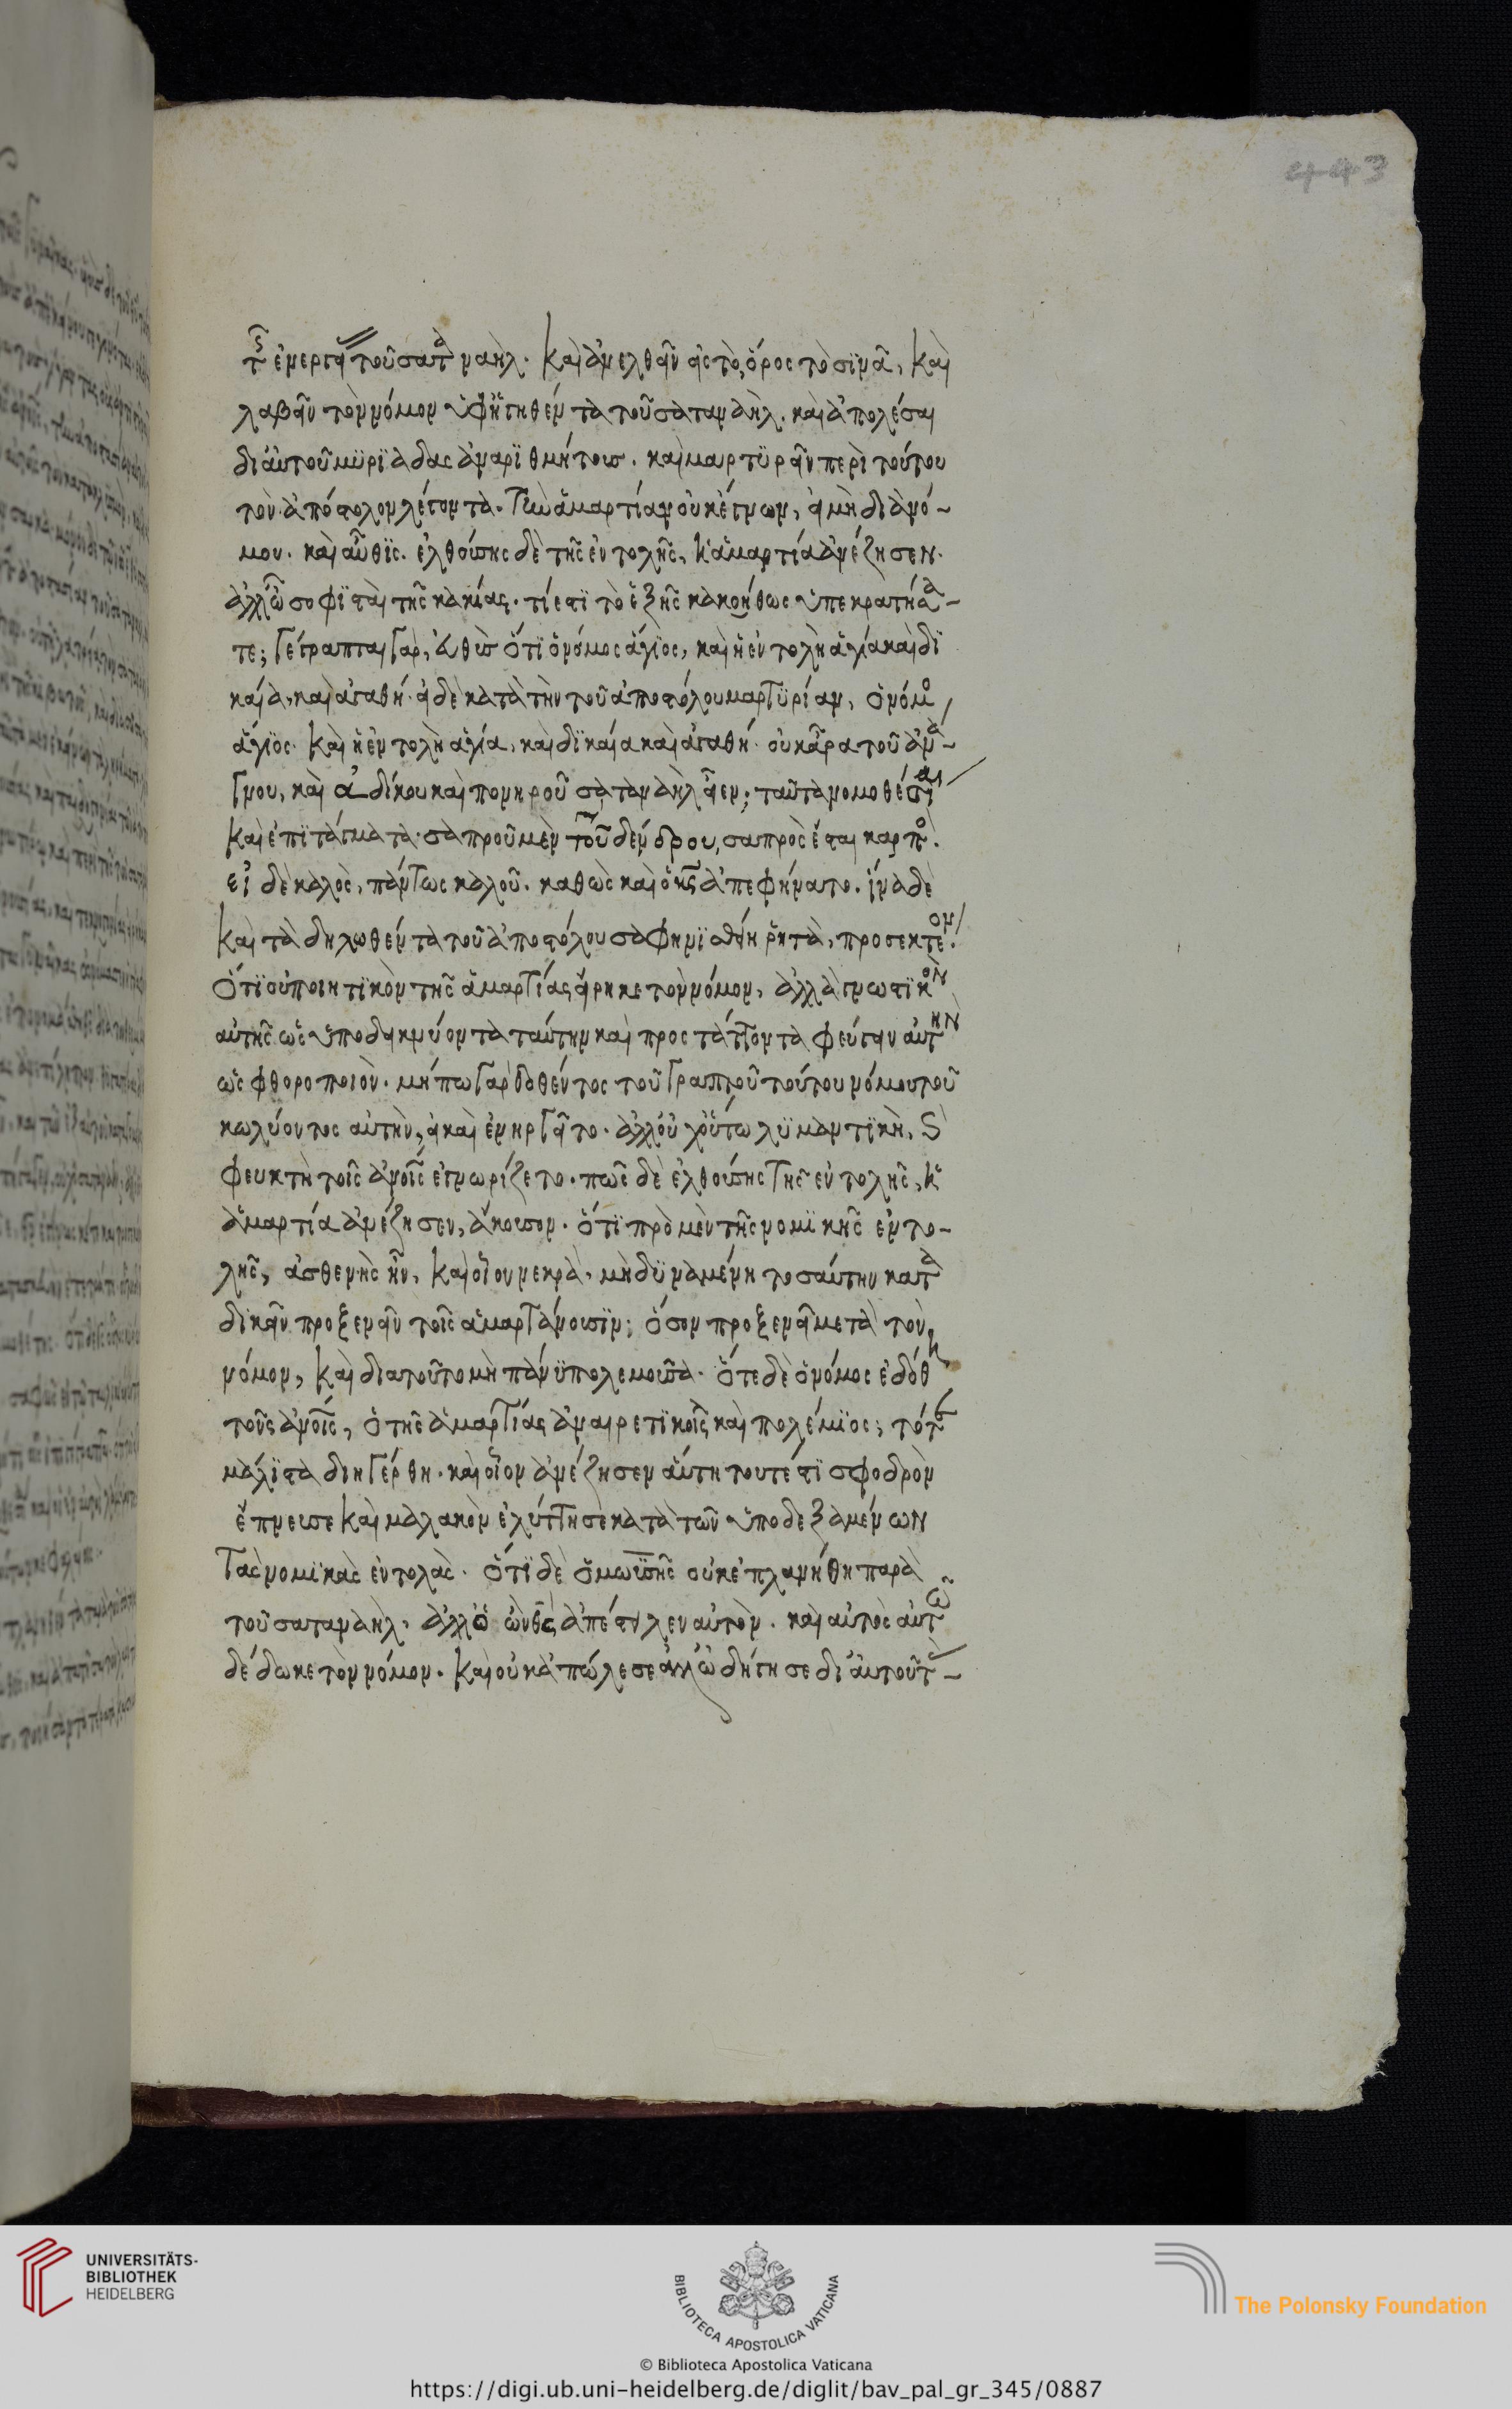 443
τῆς ἐνεργεί τοῦ σατα μαήλ. Καὶ ἀνελθεῖν εἰς τὸ ὄρος τὸ σϊνᾶ, καὶ
λαβεῖν τὸν νόμον ὑφηγηθέντα τοῦ σαταναήλ. καὶ ἀπολέσαι
δι' αὐτοῦ μϋρϊάδας ἀναρϊθμήτους. καὶ μαρτϋρεῖν περὶ τούτου
τὸν ἀπόστολον λέγοντα. Τὴν ἁμαρτίαν οὐκ ἔγνων, εἰ μὴ διὰ νό-
μου. καὶ αὖθϊς. ἐλθούσης δὲ τῆς ἐντολῆς, ἡ ἁμαρτία ἀνέζησεν.
ἀλλ' ὦ σοφϊσταὶ τῆς κακίας. τί ἐστϊ τὸ ἑξῆς κακοήθως ὑπεκρατήσα-
τε; Γέγραπται γὰρ, εὐθὺς ὅτϊ ὁ νόμος ἅγϊος, καὶ ἡ ἐντολὴ ἁγία καὶ δϊ
καία, καὶ ἀγαθή. εἰ δὲ κατὰ τὴν τοῦ ἀποστόλου μαρτϋρίαν, ὁ νόμο
ἅγϊος. Καὶ ἡ ἐντολὴ ἁγία, καὶ δϊκαία καὶ ἀγαθή. οὐκ ἄρα τοῦ ἀνά-
γνου, καὶ ἀδίκου καὶ πονηροῦ σαταναὴλ εἶεν; ταῦτα νομοθέσιαι
Καὶ ἐπϊτάγματα. σαπροῦ μὲν τοῦ δένδρου, σαπρὸς ἔσται καρπο.
εἰ δὲ καλὸς, πάντως καλοῦ. καθὼς καὶ ὁ κς ἀπεφήνατο. ἵνα δὲ
Καὶ τὰ δηλωθέντα τοῦ ἀποστόλου σαφηνϊσθῆ ῥητὰ, προσεκτέον.
Ὅτϊ οὐ ποιητϊκὸν τῆς ἁμαρτίας εἴρηκε τὸν νόμον, ἀλλὰ γνωστϊκὸν
αὐτῆς ὡς ὑποδεικνύοντα ταύτην καὶ προστάττοντα φεύγειν αὐτὴν
ὡς φθοροποιὸν. μήπω γὰρ δοθέντος τοῦ γραπτοῦ τούτου νόμου τοῦ
κωλύοντος αὐτὴν, εἰ καὶ ἐνηργεῖτο. ἀλλ' οὐχ οὕτω λϋμαντϊκὴ, καὶ
φευκτὴ τοῖς ἀνοις ἐγνωρίζετο. πῶς δὲ ἐλθούσης τῆς ἐντολῆς, ἡ
ἁμαρτία ἀνέζησεν, ἄκουσον. ὅτϊ πρὸ μὲν τῆς νομϊκῆς ἐντο-
λῆς, ἀσθενὴς ἦν, καὶ οἷον νεκρὰ, μὴ δϋναμένη τοσαύτην κατα
δϊκην προξενεῖν τοῖς ἁμαρτάνουσϊν; ὅσον προξενεῖ μετὰ τὸν
νόμον, καὶ διατοῦτο μὴ πάνϋ πολεμοῦσα. ὅτε δὲ ὁ νόμος ἐδόθη
τοῖς ἀνοις, ὁ τῆς ἁμαρτίας ἀναιρετϊκὸς καὶ πολέμϊος; τότε
μάλϊστα διηγέρθη. καὶ οἷον ἀνέζησεν αὕτη τουτέστϊ σφοδρὸν
ἔπνευσε καὶ μανϊκὸν ἐλύττησε κατὰ τῶν ὑποδεξαμένων
Τὰς νομϊκὰς ἐντολὰς. ὅτϊ δὲ ὁ μωϋσῆς οὐκ ἐπλανήθη παρὰ
τοῦ σαταναὴλ, ἀλλ' ὁ ὢν θς ἀπέστειλεν αὐτὸν. καὶ αὐτὸς αὐτῶ
δέδωκε τὸν νόμον. Καὶ οὐκ ἀπώλεσεν ἀλλ' ὡδήγησε δι' αὐτοῦ τ-
UNIVERSITÄTS-
BIBLIOTHEK
HEIDELBERG
BIBLIOTECA APOSTOLICA VATICANA
The Polonsky Foundation
© Biblioteca Apostolica Vaticana
https://digi.ub.uni-heidelberg.de/diglit/bav_pal_gr_345/0887